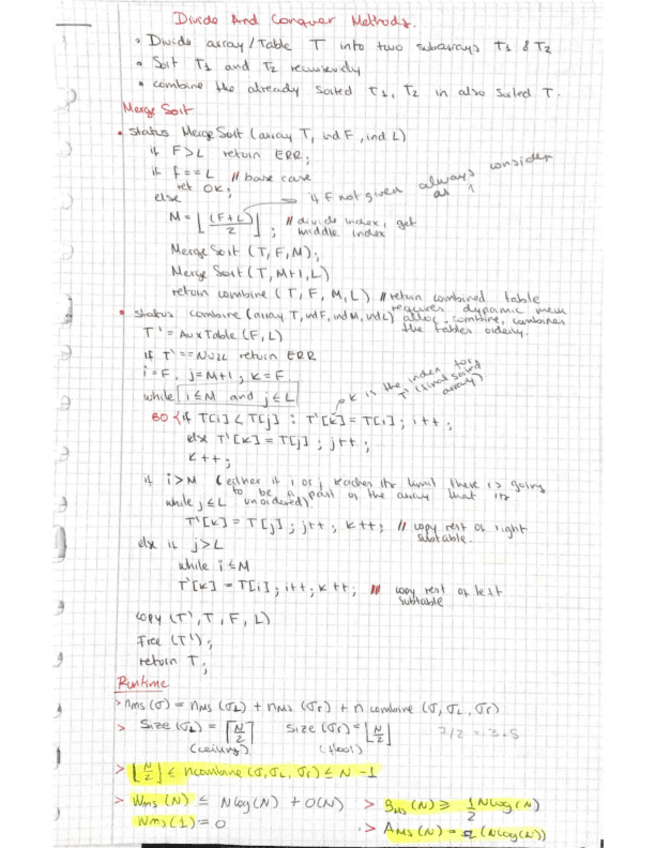 Divide And Conquer Methods.
• Divide array/Table T into two subarrays T1 & T2
• Sort T1 and T2 recursively
• combine the already sorted T1, T2 in also sorted T.
Merge Sort
• status Merge Sort (array T, ind F, ind L)
if F>L return ERR;
if F==L // base case
ret OK;
else
if F not given always consider as 1
M = ⌊(F+L)/2⌋; // divide index, get middle index
Merge Sort (T, F, M);
Merge Sort (T, M+1, L)
return combine (T, F, M, L) // return combined table
• status combine (array T, ind F, ind M, ind L) requires dynamic mem alloc, combine, combines the tables orderly.
T' = AuxTable (F, L)
if T' == NULL return ERR
i=F, j=M+1; k=F
while i≤M and j≤L
k is the index for T' (final sorted array)
BO {if T[i] < T[j] : T'[k] = T[i]; i++;
else T'[k] = T[j]; j++;
k++;
if i>M (either if i or j reaches its limit there is going to be a part of the array that its unordered).
while j≤L
T'[k] = T[j]; j++; k++; // copy rest of right subtable.
else if j>L
while i≤M
T'[k] = T[i]; i++; k++; // copy rest of left subtable
copy (T', T, F, L)
Free (T');
return T;
Runtime
> nMS (σ) = nMS (σL) + nMS (σr) + n combine (σ, σL, σr)
> Size (σL) = ⌈N/2⌉ Size (σr) = ⌊N/2⌋ 7/2 = 3.5
(ceiling) (floor)
> ⌊N/2⌋ ≤ ncombine (σ, σL, σr) ≤ N-1
> WMS (N) ≤ N log (N) + O(N) > BMS (N) ≥ 1/2 N log (N)
WMS (1) = 0 > AMS (N) = (N log(N))